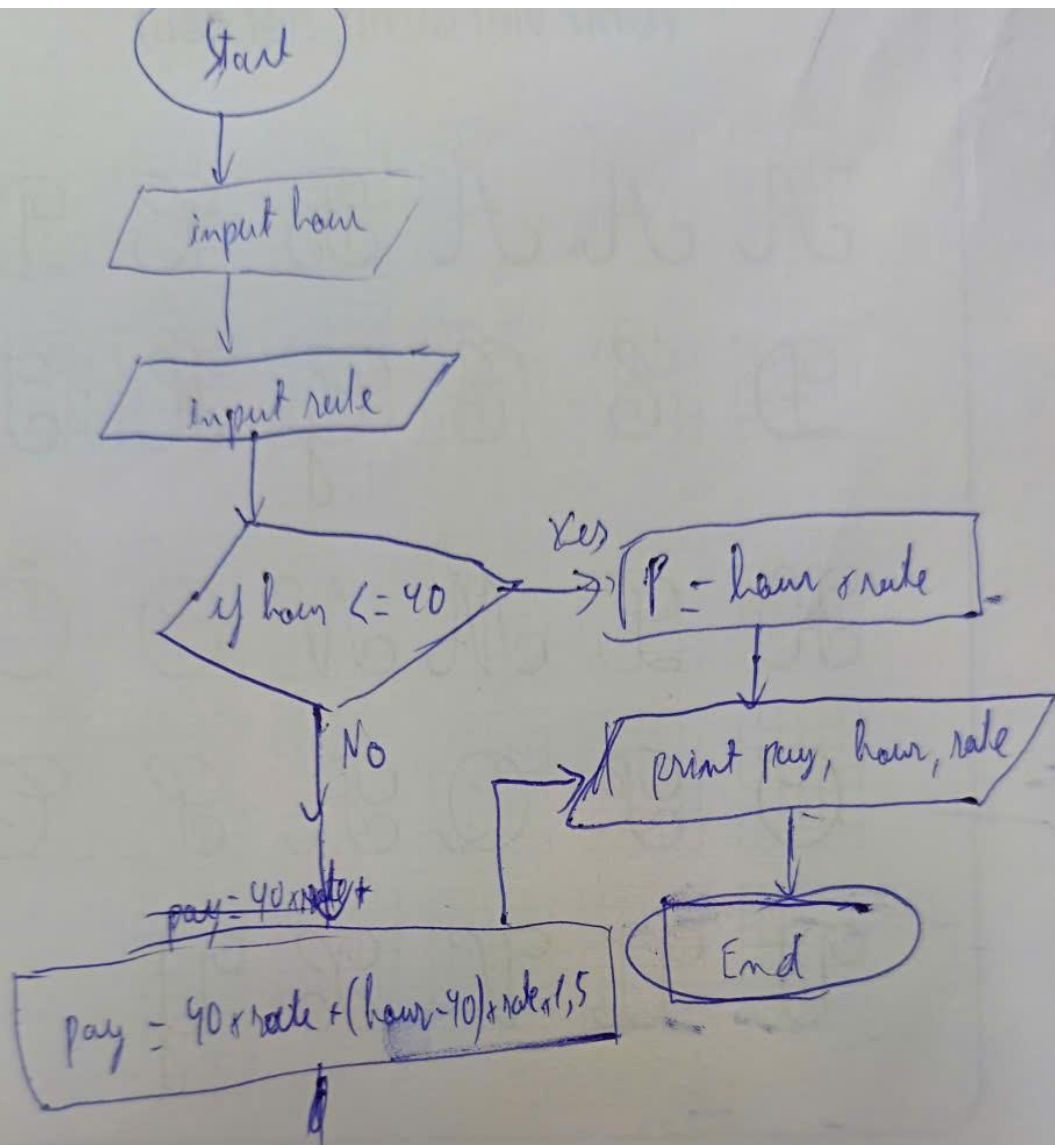 Start
input hour
input rate
if hour <= 40
Yes
P = hour * rate
No
print pay, hour, rate
pay = 40 * rate +
End
pay = 40 * rate + (hour - 40) * rate * 1,5